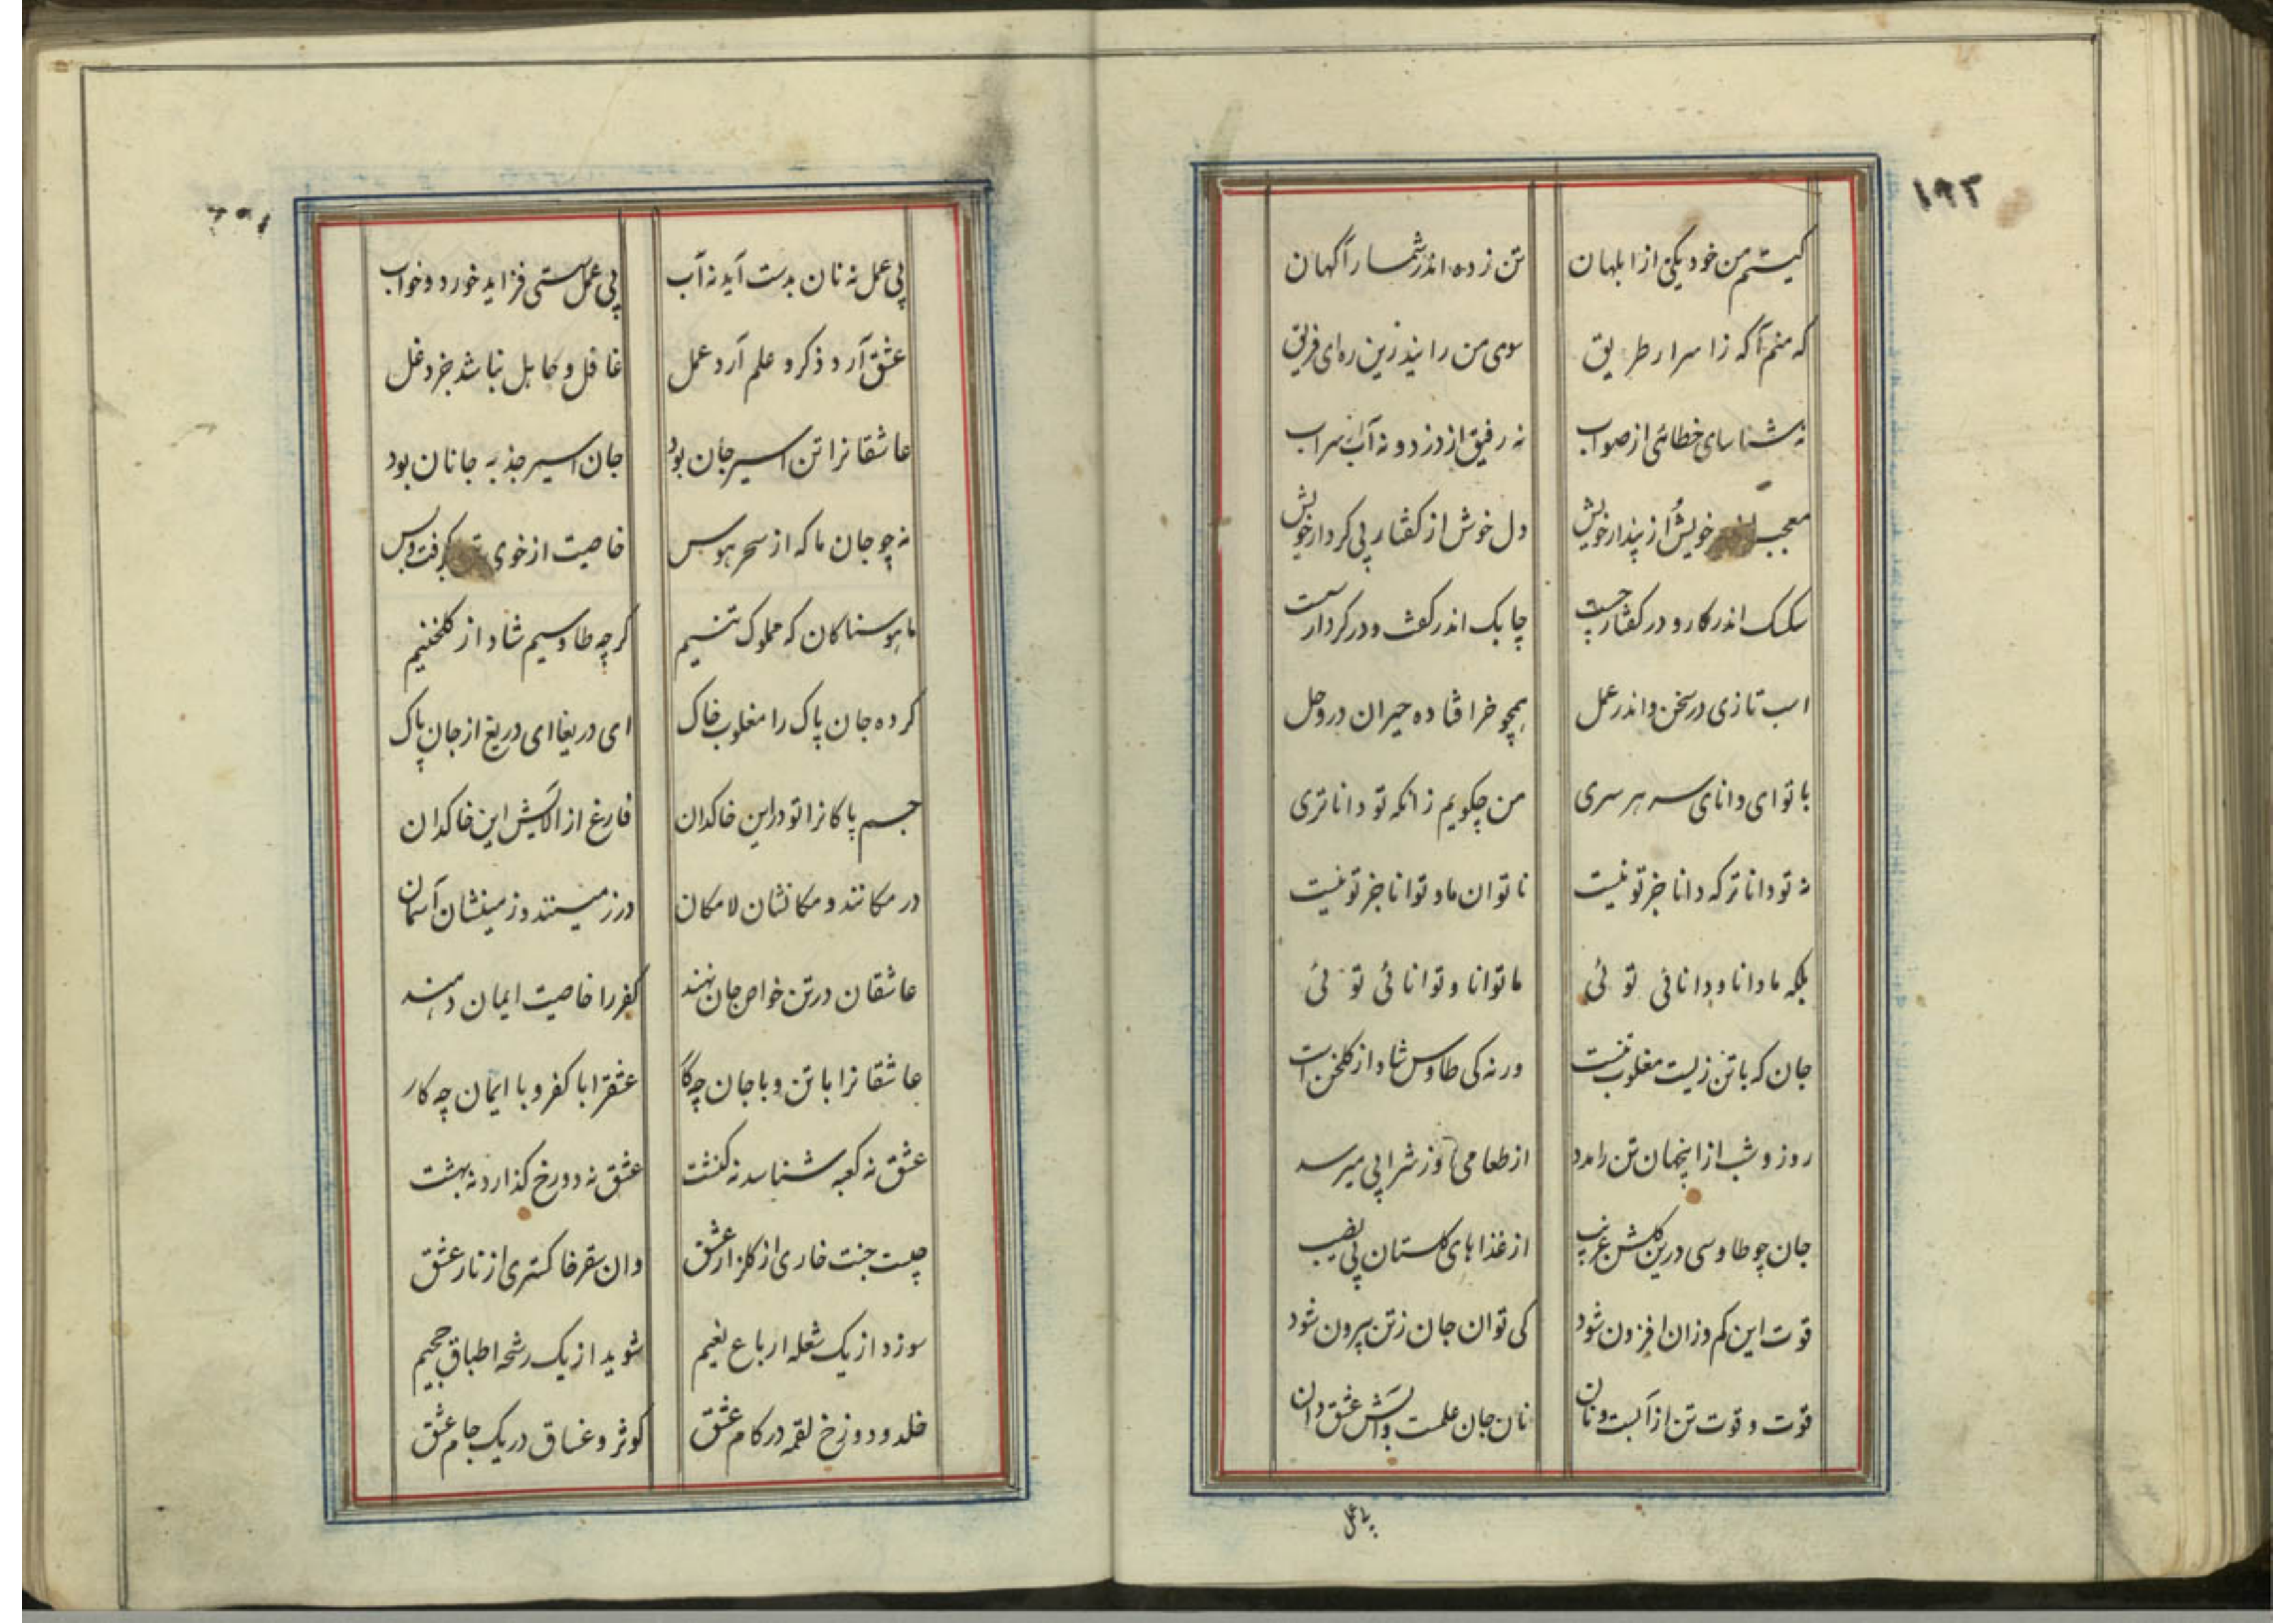 ۱۹۲
کیستم من خود یکی از ابلهان تن زده اندر شمار آگهان
که منم آگه ز اسرار طریق سوی من رانید زین ره ای فریق
نه شناسای خطائی از صواب نه رفیق از دزد و نه آب از سراب
معجب خویش از پندار خویش دل خوش از گفتار بی کردار خویش
سکسک اندر کار و در گفتار چست چابک اندر گفت و در کردار سست
اسب تازی در سخن و اندر عمل همچو خر افتاده حیران در وحل
با تو ای دانای سر هر سری من چگویم زانکه تو داناتری
نه تو داناتر که دانا جز تو نیست ناتوان ما و توانا جز تو نیست
بلکه ما دانا و دانائی توئی ما توانا و توانائی توئی
جان که با تن زیست مغلوب تنست ورنه کی طاوس شاد از گلخن است
روز و شب از اینجهان تن را مدد از طعامی یا وز شرابی میرسد
جان چو طاوسی درین گلشن غریب از غذاهای گلستان بی نصیب
قوت این کم وزان افزون شود کی توان جان ز تن بیرون شود
قوت و قوت تن از آبست و نان نان جان علمست و آبش عشق دان
بی عمل
بی عمل نه نان بدست آید نه آب بی عمل سستی فزاید خورد و خواب
عشق آرد ذکر و علم آرد عمل غافل و کاهل نباشد جز دغل
عاشقانرا تن اسیر جان بود جان اسیر جذبه جانان بود
نه چو جان ما که از سحر هوس خاصیت از خوی گرفت و بس
ما هوسناکان که مملوک تنیم گرچه طاوسیم شاد از گلخنیم
کرده جان پاک را مغلوب خاک ای دریغا ای دریغ از جان پاک
جسم پاکانرا تو در این خاکدان فارغ از آلایش این خاکدان
در مکانند و مکانشان لامکان در زمینند و زمینشان آسمان
عاشقان در تن خواص جان نهند کفر را خاصیت ایمان دهند
عاشقانرا با تن و با جان چه کار عشقرا با کفر و با ایمان چه کار
عشق نه کعبه شناسد نه کنشت عشق نه دوزخ گذارد نه بهشت
چیست جنت خاری از گلزار عشق وان سقر خاکستری از نار عشق
سوزد از یک شعله ارباع نعیم شوید از یک رشحه اطباق جحیم
خلد و دوزخ لقمه در کام عشق کوثر و غساق در یک جام عشق